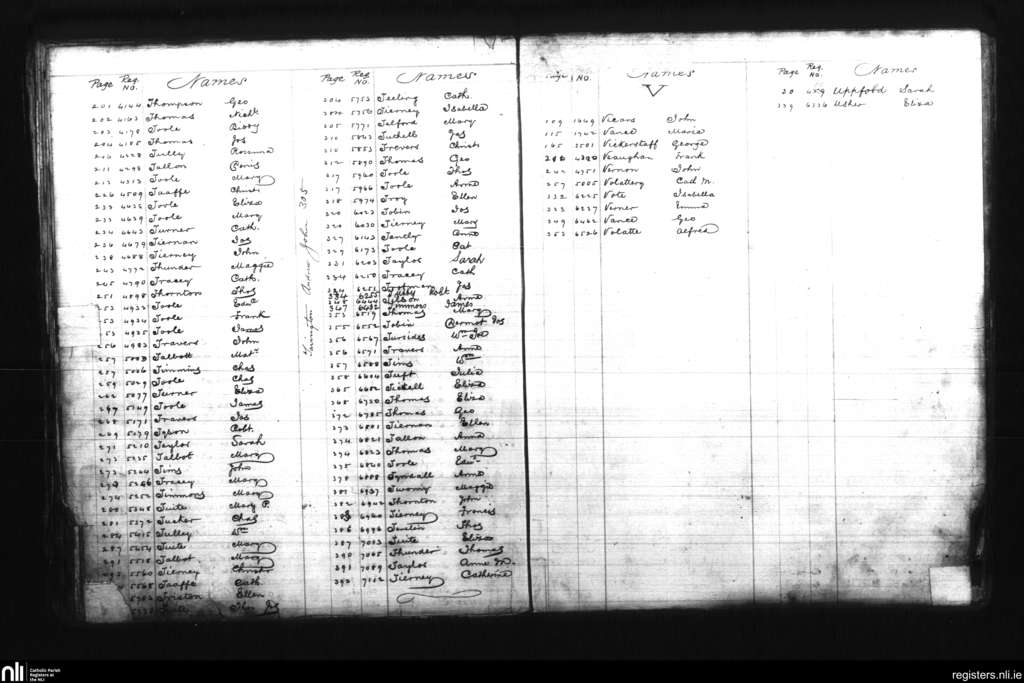 Page Reg. No. Names
201 4144 Thompson Geo
202 4163 Thomas Nichs.
203 4178 Toole Biddy
204 4185 Thomas Jos
210 4228 Tully Rosanna
211 4298 Tallon Denis
213 4313 Toole Mary
226 4509 Taaffe Christr
233 4625 Toole Eliza
233 4639 Toole Mary
234 4643 Turner Cath.
236 4679 Tiernan Jas
238 4688 Tierney John
243 4772 Thunder Maggie
245 4790 Tracey Cath.
251 4898 Thornton Thos
253 4932 Toole Edwd
253 4934 Toole Frank
253 4935 Toole James
256 4983 Travers John
257 5003 Talbott Mat.
257 5006 Timmins Chas
259 5029 Toole Chas
262 5077 Turner Eliza
267 5149 Toole James
268 5171 Travers Jos
269 5179 Tyson Robt.
271 5210 Taylor Sarah
273 5235 Talbot Mary
273 5244 Tims John
273 5246 Tracey Mary
274 5252 Timmons Mary
280 5345 Tuite Mary P.
281 5372 Tucker Chas
284 5415 Tulley Wm
287 5454 Tuite Mary
291 5518 Talbot Mary
5560 Tierney Christr
5565 Taaffe Cath.
Ellen
Thos Jos
Torrington Andrew John 305
Page Reg No. Names
204 5753 Teeling Cath.
204 5756 Tierney Isabella
205 5771 Telford Mary
210 5843 Tuchell Jas
210 5853 Trevors Christr
212 5890 Thomas Geo
217 5960 Toole Thos
217 5966 Toole Anne
218 5974 Troy Ellen
220 6023 Tobin Jos
220 6030 Tierney Mary
327 6143 Tently Anne
329 6173 Toole Pat
331 6203 Taylor Sarah
334 6250 Tracey Cath
334 6251 Trotman Jas
334 6255 Tilsby Robt
348 6444 Tilson Anne
347 6432 Timmons James
353 6519 Thomas Mary
355 6552 Tobin Dermot Jos
356 6567 Tursides Wm Jos
356 6571 Travers Anne
357 6588 Tims Wm
358 6604 Tuft Julia
365 6652 Tickell Eliza
368 6720 Thomas Eliza
372 6785 Thomas Geo
373 6801 Tiernan Ellen
374 6821 Tallon Anne
374 6823 Thomas Mary
375 6840 Toole Edwd
378 6888 Tyndall Anne
381 6937 Twomy Maggie
382 6942 Thornton John
383 6960 Tierney Francis
386 6996 Austin Thos
387 7023 Tuite Eliza
390 7065 Thunder Thomas
391 7089 Taylor Anne M.
392 7112 Tierney Catherine
Page No. Names
V
109 1649 Vicars John
115 1742 Vance Maria
165 2581 Vickerstaff George
208 4280 Vaughan Frank
242 4751 Vernon John
257 5005 Volattery Cath M.
332 6225 Vote Isabella
333 6237 Verner Emma
349 6462 Vance Geo
353 6526 Volatte Alfred
Page Reg. No. Names
20 429 Uppfold Sarah
339 6336 Usher Eliza
nli Catholic Parish
Registers at
the NLI
registers.nli.ie